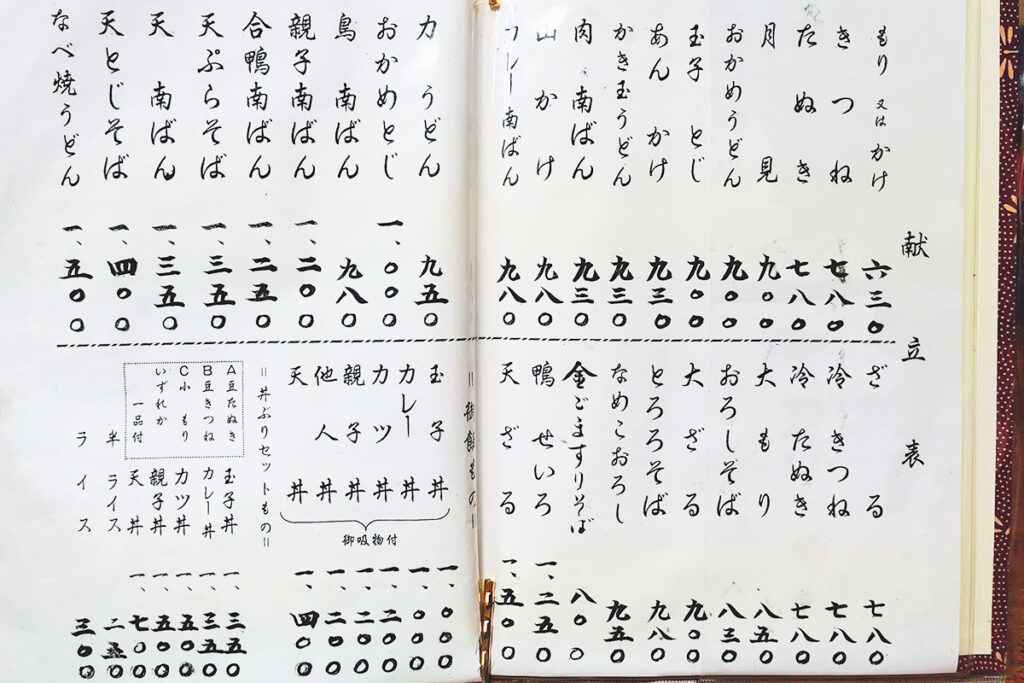 献立表
もり 又は かけ 六三〇
きつね 七八〇
たぬき 七八〇
月見 九〇〇
おかめうどん 九〇〇
玉子とじ 九〇〇
あんかけ 九三〇
かき玉うどん 九三〇
肉南ばん 九三〇
山かけ 九八〇
カレー南ばん 九八〇
力うどん 九五〇
おかめとじ 一、〇〇〇
鳥南ばん 九八〇
親子南ばん 一、二〇〇
合鴨南ばん 一、二五〇
天ぷらそば 一、三五〇
天南ばん 一、三五〇
天とじそば 一、四〇〇
なべ焼うどん 一、五〇〇
ざる 七八〇
冷きつね 七八〇
冷たぬき 七八〇
大もり 八五〇
おろしそば 八三〇
大ざる 九〇〇
とろろそば 九八〇
なめこおろし 九五〇
金ごますりそば 八〇〇
鴨せいろ 一、二五〇
天ざる 一、五〇〇
=御飯もの=
玉子丼 一、〇〇〇
カレー丼 一、〇〇〇
カツ丼 一、二〇〇
親子丼 一、二〇〇
他人丼 一、二〇〇
天丼 一、四〇〇
御吸物付
=丼ぶりセットもの=
A豆たぬき
B豆きつね
C小もり
いずれか
一品付
玉子丼 一、三五〇
カレー丼 一、三五〇
カツ丼 一、五五〇
親子丼 一、五〇〇
天丼 一、七〇〇
半ライス 二五〇
ライス 三〇〇